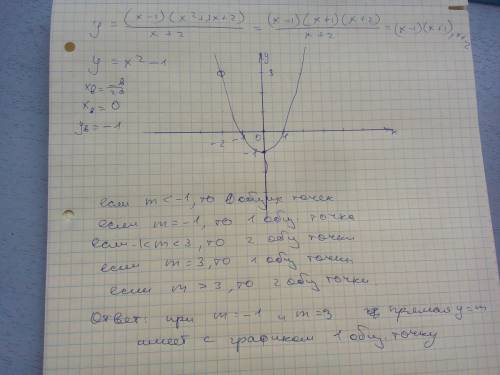 y = (x-1)(x²+3x+2) / x+2 = (x-1)(x+1)(x+2) / x+2 = (x-1)(x+1), x≠
2
y = x² - 1
x_в = -в / 2а
x_в = 0
y_в = -1
y
3
x
-2 -1 0 1
-1
если m < -1, то общих точек
если m = -1, то 1 общ. точка
если -1<m<3, то 2 общ. точки
если m = 3, то 1 общ. точка
если m > 3, то 2 общ. точки
Ответ: при m = -1 и m = 3 прямая y = m
имеет с графиком 1 общ. точку